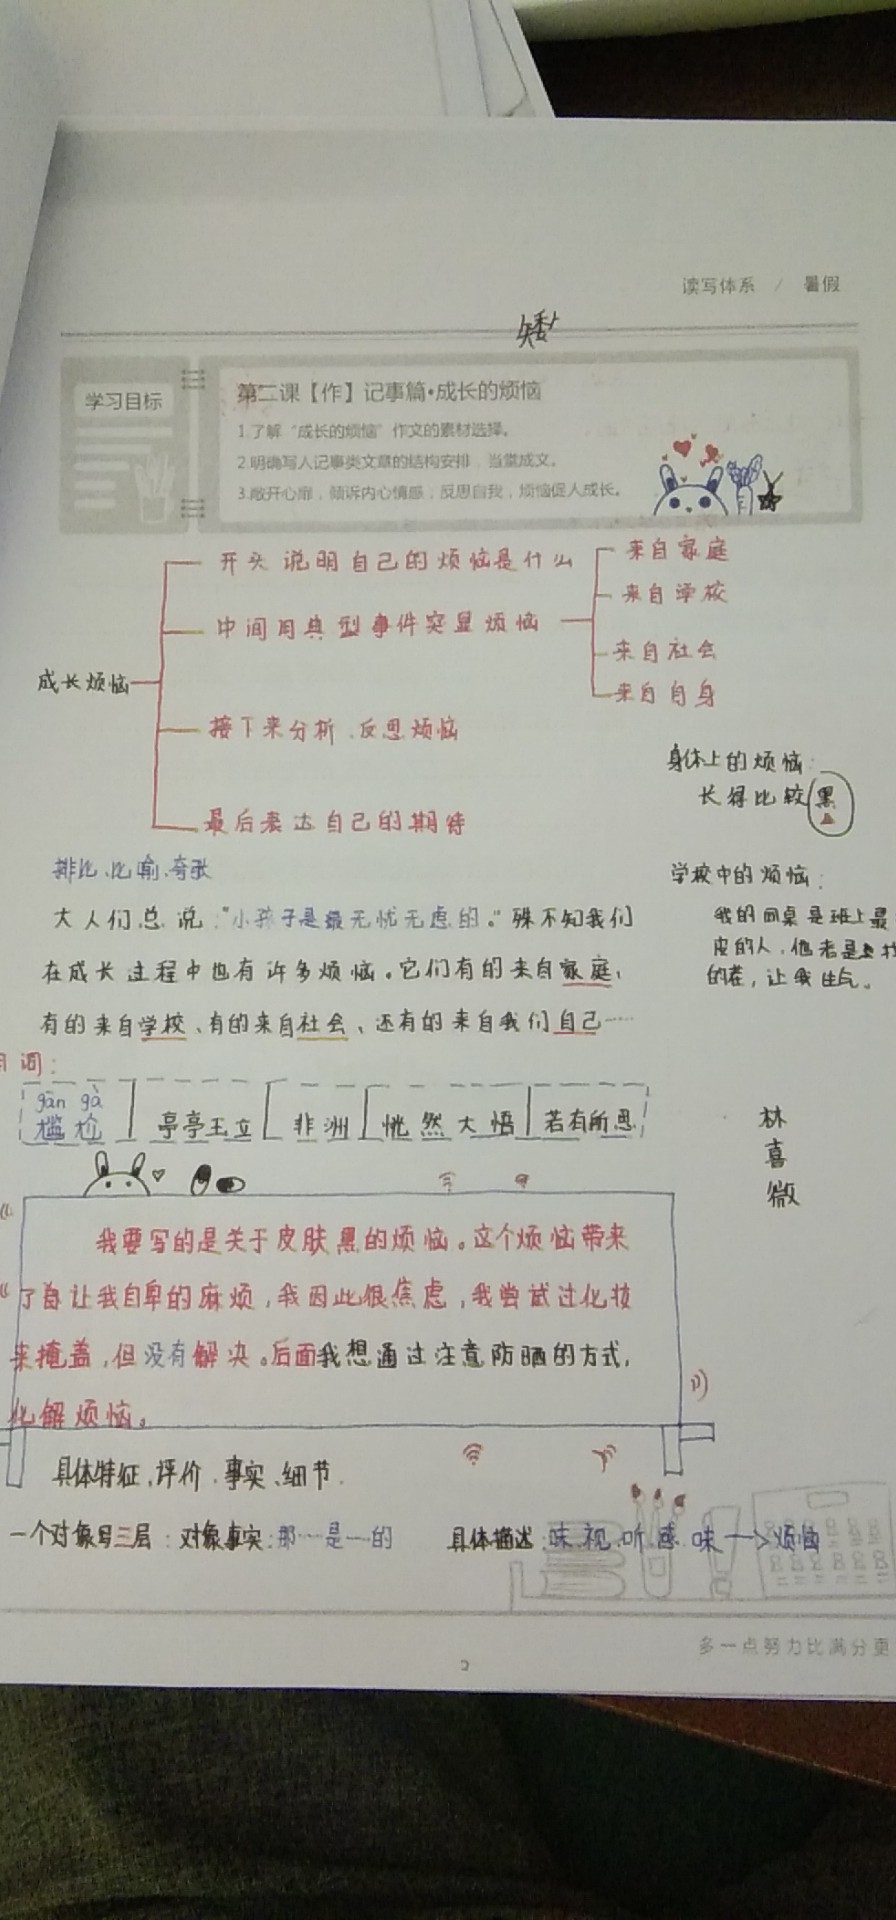 读写体系 / 暑假
矮
学习目标
第二课【作】记事篇·成长的烦恼
1.了解“成长的烦恼”作文的素材选择。
2.明确写人记事类文章的结构安排，当堂成文。
3.敞开心扉，倾诉内心情感；反思自我，烦恼促人成长。
成长烦恼
开头说明自己的烦恼是什么
中间用典型事件突显烦恼
来自家庭
来自学校
来自社会
来自自身
接下来分析、反思烦恼
最后表达自己的期待
身体上的烦恼：
长得比较黑
排比、比喻、夸张
大人们总说：“小孩子是最无忧无虑的。”殊不知我们
在成长过程中也有许多烦恼。它们有的来自家庭、
有的来自学校、有的来自社会、还有的来自我们自己……
学校中的烦恼：
我的同桌是班上最
皮的人，他老是
的茬，让我生气。
词：
gān gà
尴尬
亭亭玉立
非洲
恍然大悟
若有所思
林
喜
薇
我要写的是关于皮肤黑的烦恼。这个烦恼带来
了让我自卑的麻烦，我因此很焦虑，我尝试过化妆
来掩盖，但没有解决。后面我想通过注意防晒的方式，
化解烦恼。
具体特征、评价、事实、细节.
一个对象写三层：对象事实：那……是……的
具体描述：味.视.听.感.味→烦恼
多一点努力比满分更